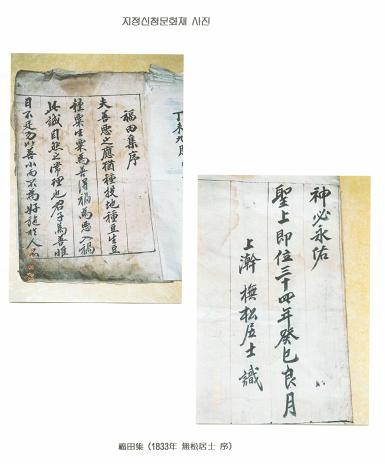 지정신청문화재 사진
福田集序
夫善惡之應猶種投地種豆生豆
種粟生粟為善得福為惡入禍
此誠自然之常理也君子為善惟
日不足勿以善小而不為好施於人
神必永佑
聖上即位三十四年癸巳良月
上澣 撫松居士 識
福田集 (1833年 無松居士 序)